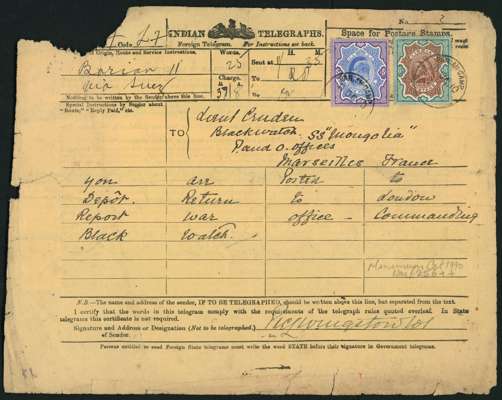 Code
INDIAN TELEGRAPHS.
Foreign Telegram. For Instructions see back.
No.
Space for Postage Stamps.
Origin, Route and Service Instructions.
Words.
23
H. M.
Sent at
To
Charge.
To
Via Suez
Nothing to be written by the Sender above this line.
Special Instructions by Sender about
"Route," "Reply Paid," etc.
TO
Lieut Cruden
Blackwatch. SS "Mongolia"
P and O. offices
Marseilles France
you are Posted to
Depôt. Return to London
Report war office - Commanding
Black Watch.
N.B.—The name and address of the sender, IF TO BE TELEGRAPHED, should be written above this line, but separated from the text.
I certify that the words in this telegram comply with the requirements of the telegraph rules quoted overleaf. In State
telegrams this certificate is not required.
Signature and Address or Designation (Not to be telegraphed.)
of Sender.
Persons entitled to send Foreign State telegrams must write the word STATE before their signature in Government telegrams.